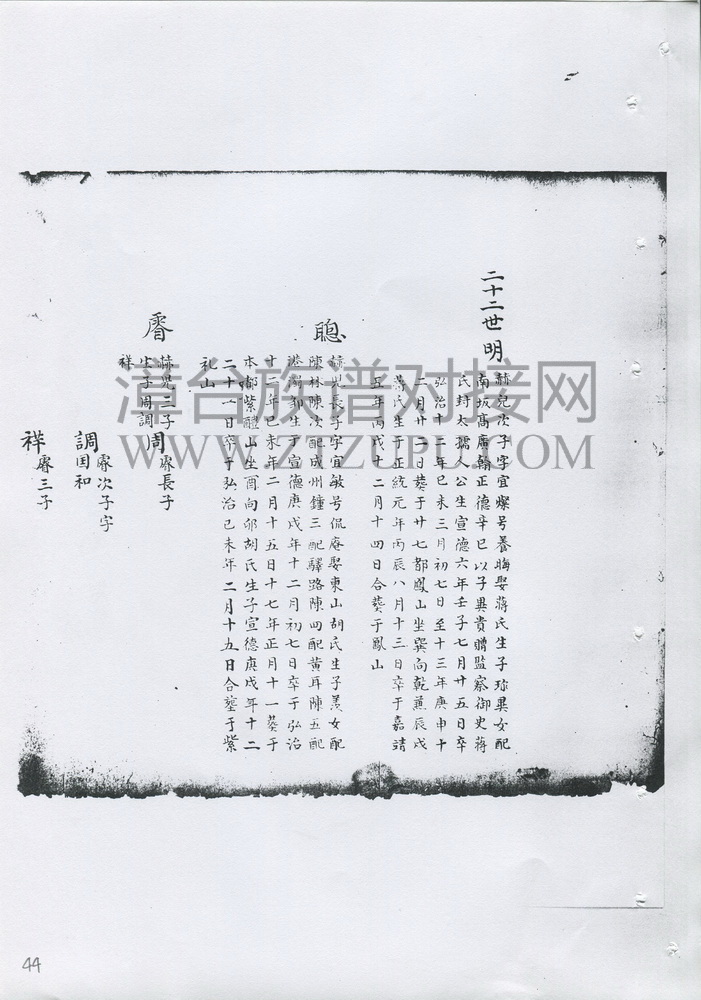 二十二世 明
赫兒次子字宜燦号養晦娶蔣氏生子球異女配
南坂高廣翰正德辛巳以子異貴贈監察御史蔣
氏封太孺人公生宣德六年壬子七月廿五日卒
弘治十二年己未三月初七日至十三年庚申十
二月廿二日葬于廿七都鳳山坐巽向乾兼辰戌
蔣氏生于正統元年丙辰八月十三日卒于嘉靖
五年丙戌十二月十四日合葬于鳳山
聰
赫兒長子字宜敏号侃庵娶東山胡氏生子善女配
陳林陳次配成州鍾三配驛路陳四配黃耳陳五配
港濶郭生于宣德庚戌年十二月初七日卒于弘治
十二年己未年二月十五日十七年正月十一葬于
本都紫醴山坐酉向卯胡氏生子宣德庚戌年十二
二十一日卒于弘治己未年二月十五日合塟于紫
礼山
睿
赫兒二子
生子周調
祥
周 睿長子
調 睿次子字
国和
祥 睿三子
漳台族谱对接网
WWW.ZIZUPU.COM
44